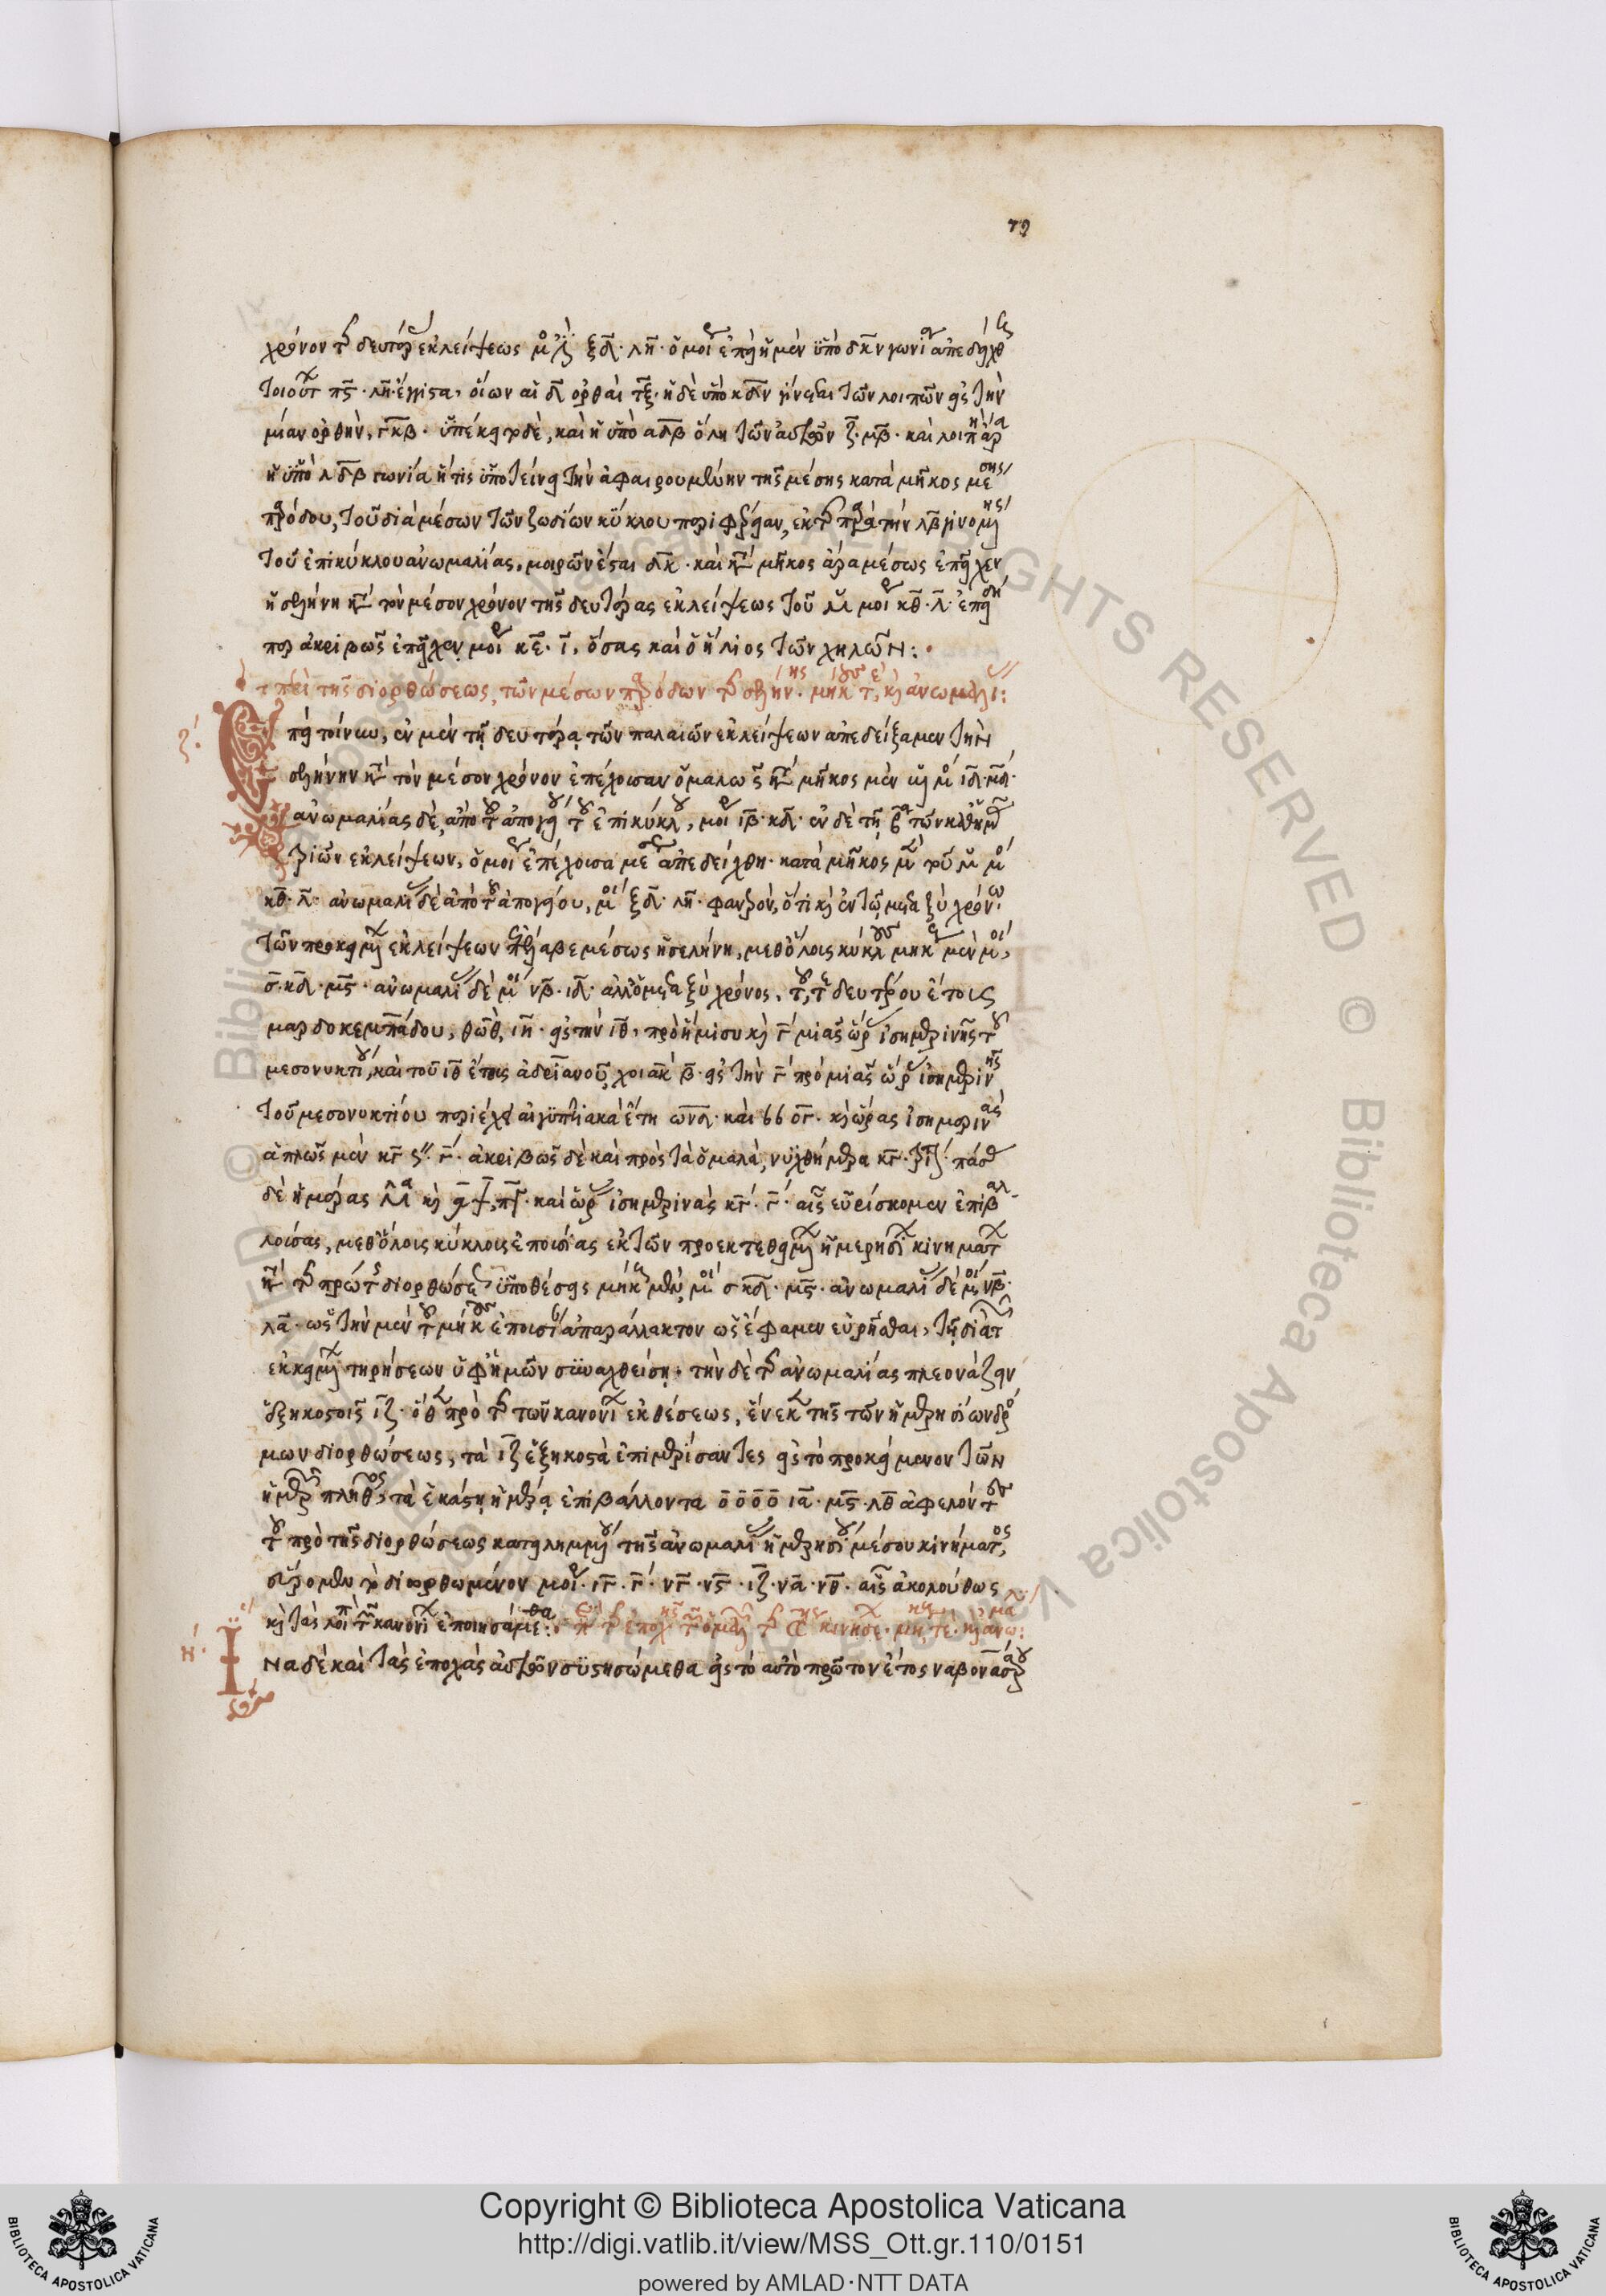 79
χρόνον τῆς δευτέρας ἐκλείψεως μοίρας ξδ̄ · λη̄ · ὁμοίως ἐπεὶ ἡ μὲν ὑπὸ δκν γωνία ἀπεδείχθη
τοιούτων πς̄ · λη̄ · ἔγγιστα, οἵων αἱ δ̄ ὀρθαὶ τξ̄ · ἡ δὲ ὑπὸ κδν γίνεται τῶν λοιπῶν εἰς τὴν
μίαν ὀρθὴν, γ̄ κβ̄ · ὑπέκειτο δὲ, καὶ ἡ ὑπὸ αδβ ὅλη τῶν αὐτῶν ζ̄ · μβ̄ · καὶ λοιπὴ ἄρα
ἡ ὑπὸ λδβ γωνία ἥτις ὑποτείνει τὴν ἀφαιρουμένην τῆς μέσης κατὰ μῆκος
παρόδου, τοῦ διὰ μέσων τῶν ζωδίων κύκλου περιφέρειαν, ἐκ τῆς παρὰ τὴν λβ γινομένης
τοῦ ἐπικύκλου ἀνωμαλίας, μοιρῶν ἔσται δ̄ κ̄ · καὶ κατὰ μῆκος ἄρα μέσως ἐπεῖχεν
ἡ σελήνη κατὰ τὸν μέσον χρόνον τῆς δευτέρας ἐκλείψεως τοῦ ♍ μοίρας κθ̄ · λ̄ · ἐπειδήπερ
ἀκριβῶς ἐπεῖχεν μοίρας κε̄ · ῑ, ὅσας καὶ ὁ ἥλιος τῶν χηλῶν :·
περὶ τῆς διορθώσεως, τῶν μέσων παρόδων τῆς σελήνης · μήκους τε, καὶ ἀνωμαλίας :
ζ΄·
Ἐπεὶ τοίνυν, ἐν μὲν τῇ δευτέρᾳ τῶν παλαιῶν ἐκλείψεων ἀπεδείξαμεν τὴν
σελήνην κατὰ τὸν μέσον χρόνον ἐπέχουσαν ὁμαλῶς κατὰ μῆκος μὲν ♍ μοίρας ιδ̄ · μδ̄ ·
ἀνωμαλίας δὲ, ἀπὸ τοῦ ἀπογείου τοῦ ἐπικύκλου, μοίρας ιβ̄ · κδ̄ · ἐν δὲ τῇ β̄ τῶν καθ' ἡμᾶς
τριῶν ἐκλείψεων, ὁμοίως ἐπέχουσα μέσως ἀπεδείχθη · κατὰ μῆκος μὲν τοῦ ♈ μοίρας
κθ̄ · λ̄ · ἀνωμαλίας δὲ ἀπὸ τοῦ ἀπογείου, μοίρας ξδ̄ · λη̄ · φανερὸν, ὅτι καὶ ἐν τῷ μεταξὺ χρόνῳ
τῶν προκειμένων ἐκλείψεων ἐπέλαβε μέσως ἡ σελήνη, μεθ' ὅλους κύκλους μήκους μὲν μοίρας,
σ̄ · κδ̄ · μς̄ · ἀνωμαλίας δὲ μοίρας νβ̄ · ιδ̄ · ἀλλ' ὁ μεταξὺ χρόνος, τοῦ τε δευτέρου ἔτους
μαρδοκεμπάδου, θὼθ, ιη̄ · εἰς τὴν ιθ̄, πρὸ ἥμισυ καὶ γ΄ μιᾶς ὥρας ἰσημερινῆς τοῦ
μεσονυκτίου, καὶ τοῦ ιθ̄ ἔτους ἀδριανοῦ, χοιὰκ β̄ · εἰς τὴν γ̄ πρὸ μιᾶς ὥρας ἰσημερινῆς
τοῦ μεσονυκτίου περιέχει αἰγυπτιακὰ ἔτη ωνδ̄ · καὶ ϛϛ ογ̄ · καὶ ὥρας ἰσημερινὰς
ἁπλῶς μὲν κγ̄ ς΄΄ · γ΄ · ἀκριβῶς δὲ καὶ πρὸς τὰ ὁμαλὰ, νυχθήμερα κγ̄ · γ΄ · πάσας
δὲ ἡμέρας · καὶ ὥρας ἰσημερινὰς κγ̄ · γ΄ · αἷς εὑρίσκομεν ἐπιβαλ-
λούσας, μεθ' ὅλους κύκλους ἐπουσίας ἐκ τῶν προεκτεθειμένων ἡμερησίων κινημάτων
κατὰ τῆς πρώτης διορθώσεως ὑποθέσεις μήκους μὲν μοίρας σ̄ κδ̄ · μς̄ · ἀνωμαλίας δὲ μοίρας νβ̄ ·
λᾱ · ὡς τὴν μὲν τοῦ μήκους ἐπουσίαν ἀπαράλλακτον ὡς ἔφαμεν εὑρῆσθαι, τῇ διὰ τῶν
ἐκκειμένων τηρήσεων ὑφ' ἡμῶν συναχθείσῃ · τὴν δὲ τῆς ἀνωμαλίας πλεονάζειν
ἑξηκοστοῖς ιζ̄ · ὅθεν πρὸ τῆς τῶν κανονίων ἐκθέσεως, ἕνεκεν τῆς τῶν ἡμερησίων δρό
μων διορθώσεως, τὰ ιζ̄ ἑξηκοστὰ ἐπιμερίσαντες εἰς τὸ προκείμενον τῶν
ἡμερῶν πλῆθος, τὰ ἑκάστῃ ἡμέρᾳ ἐπιβάλλοντα ō ō ō ō ιᾱ · μς̄ · λθ̄ ἀφελόντες
τοῦ πρὸ τῆς διορθώσεως κατειλημμένου τῆς ἀνωμαλίας ἡμερησίου μέσου κινήματος,
εὕρομεν τὸ διωρθωμένον μοιρῶν · ιγ̄ · γ̄ · νγ̄ · νς̄ · ιζ̄ · νᾱ · νθ̄ · αἷς ἀκολούθως
καὶ τὰς λοιπὰς τῶν κανονίων ἐποιησάμεθα : περὶ τῆς ἐποχῆς τῶν ὁμαλῶν τῆς ☾ κινήσεων · μήκους τε · καὶ ἀνωμαλίας :
η΄·
Ἵνα δὲ καὶ τὰς ἐποχὰς αὐτῶν συστησώμεθα εἰς τὸ αὐτὸ πρῶτον ἔτος ναβονασάρου
Copyright © Biblioteca Apostolica Vaticana
http://digi.vatlib.it/view/MSS_Ott.gr.110/0151
powered by AMLAD·NTT DATA